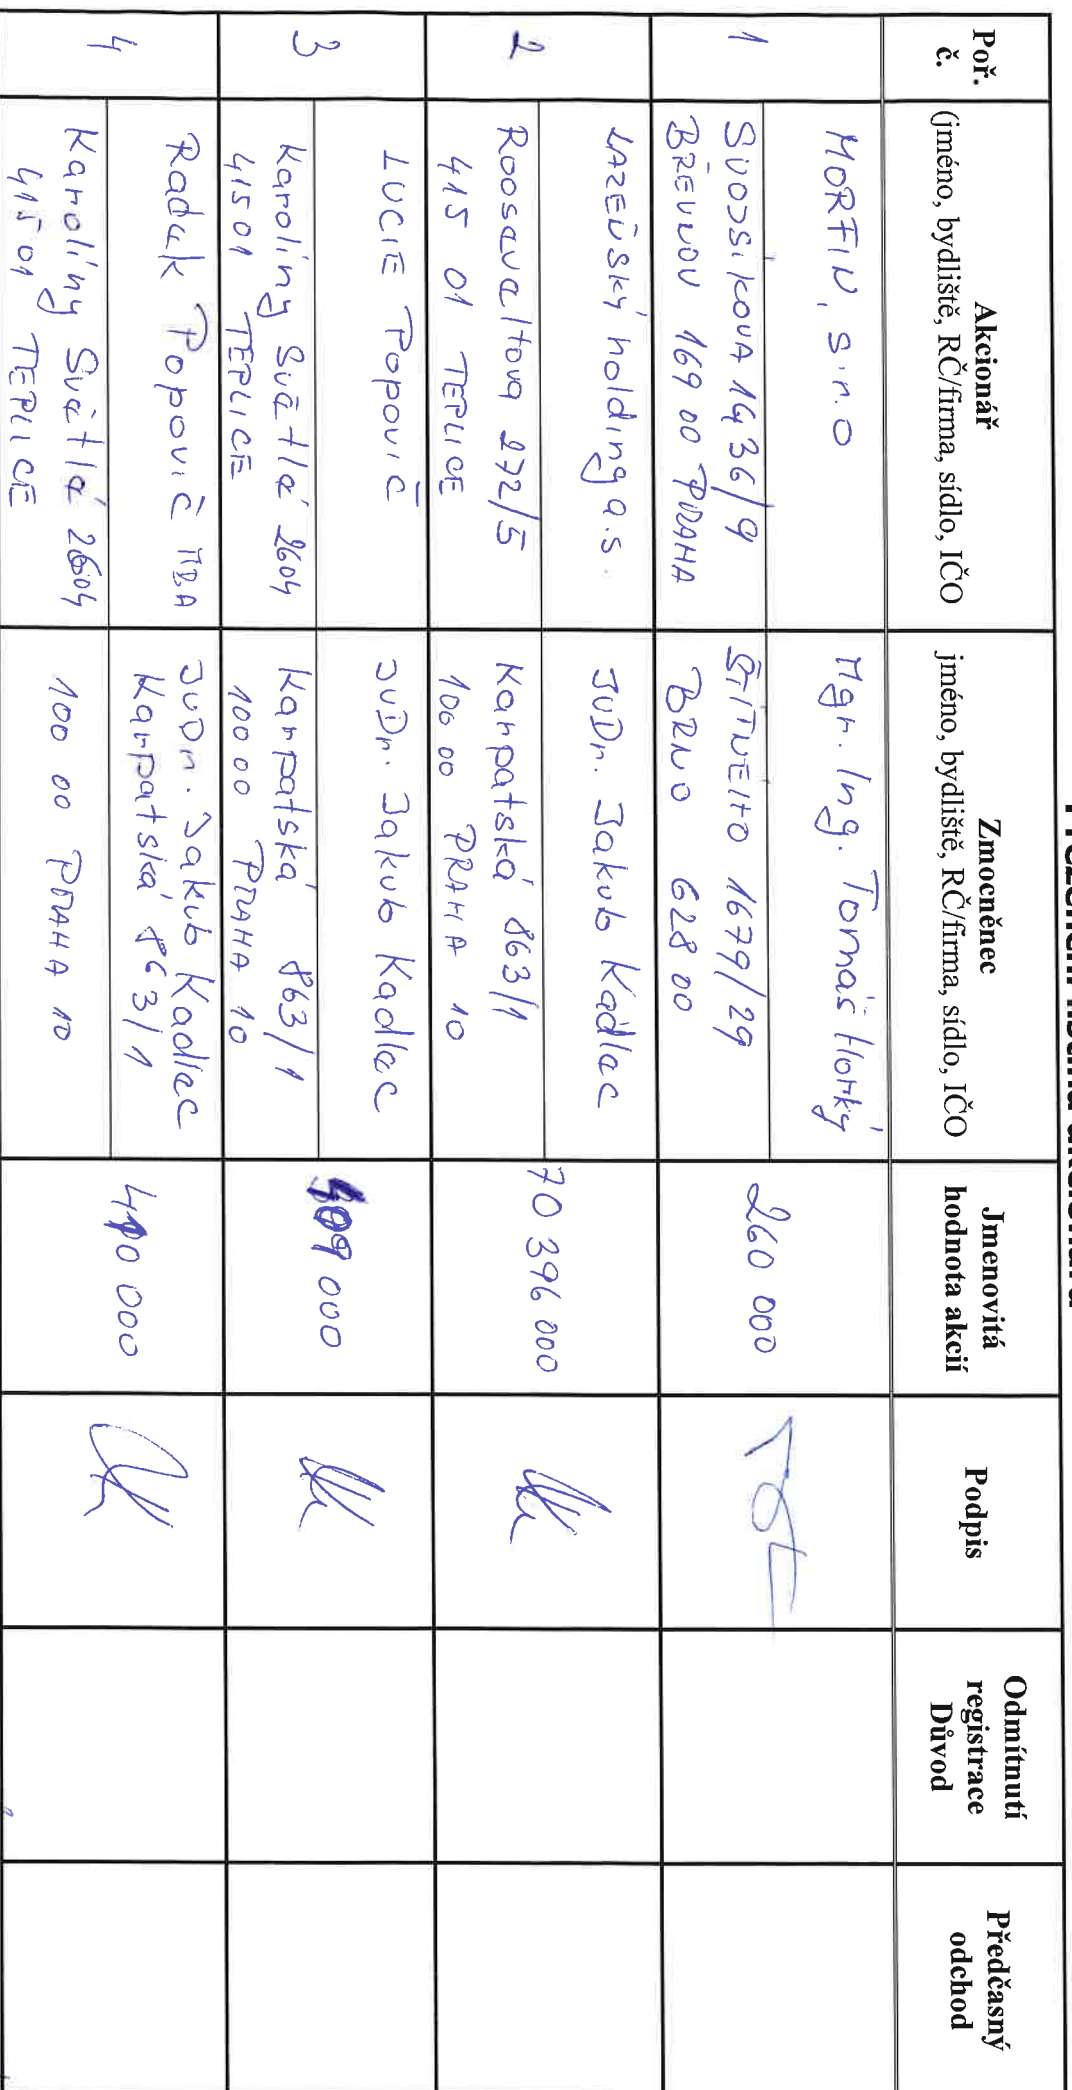 Prezenční listina akcionářů
Poř. č.
Akcionář
(jméno, bydliště, RČ/firma, sídlo, IČO
Zmocněnec
jméno, bydliště, RČ/firma, sídlo, IČO
Jmenovitá
hodnota akcií
Podpis
Odmítnutí
registrace
Důvod
Předčasný
odchod
1
MORFIN, s.r.o
SVOJSÍKOVA 1436/9
BŘEVNOV 169 00 PRAHA
Mgr. Ing. Tomáš Horký
ŠTÍTNÉHO 1679/29
BRNO 628 00
260 000
2
LAZEŇSKÝ holding a.s.
Rooseveltova 272/5
415 01 TEPLICE
JUDr. Jakub Kadlec
Karpatská 863/1
100 00 PRAHA 10
70 396 000
3
LUCIE Popovič
Karolíny Světlé 2604
415 01 TEPLICE
JUDr. Jakub Kadlec
Karpatská 863/1
100 00 PRAHA 10
000
4
Radek Popovič MBA
Karolíny Světlé 2604
415 01 TEPLICE
JUDr. Jakub Kadlec
Karpatská 863/1
100 00 PRAHA 10
410 000